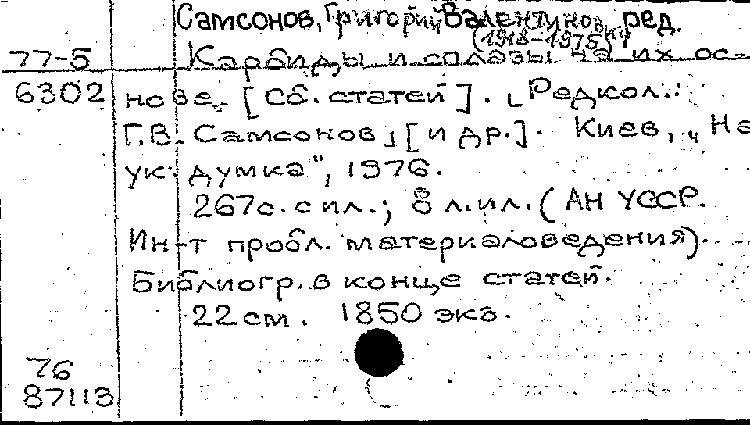 Самсонов, Григорий Валентинович, ред.
(1918-1975)
77-5 Карбиды и сплавы на их ос-
6302 нове. [Сб. статей]. Редкол.:
Г.В. Самсонов [и др.]. Киев, „На
ук. думка", 1976.
267с. с ил.; 8 л. ил. (АН УССР.
Ин-т пробл. материаловедения).
Библиогр. в конце статей.
22 см. 1850 экз.
76
87113